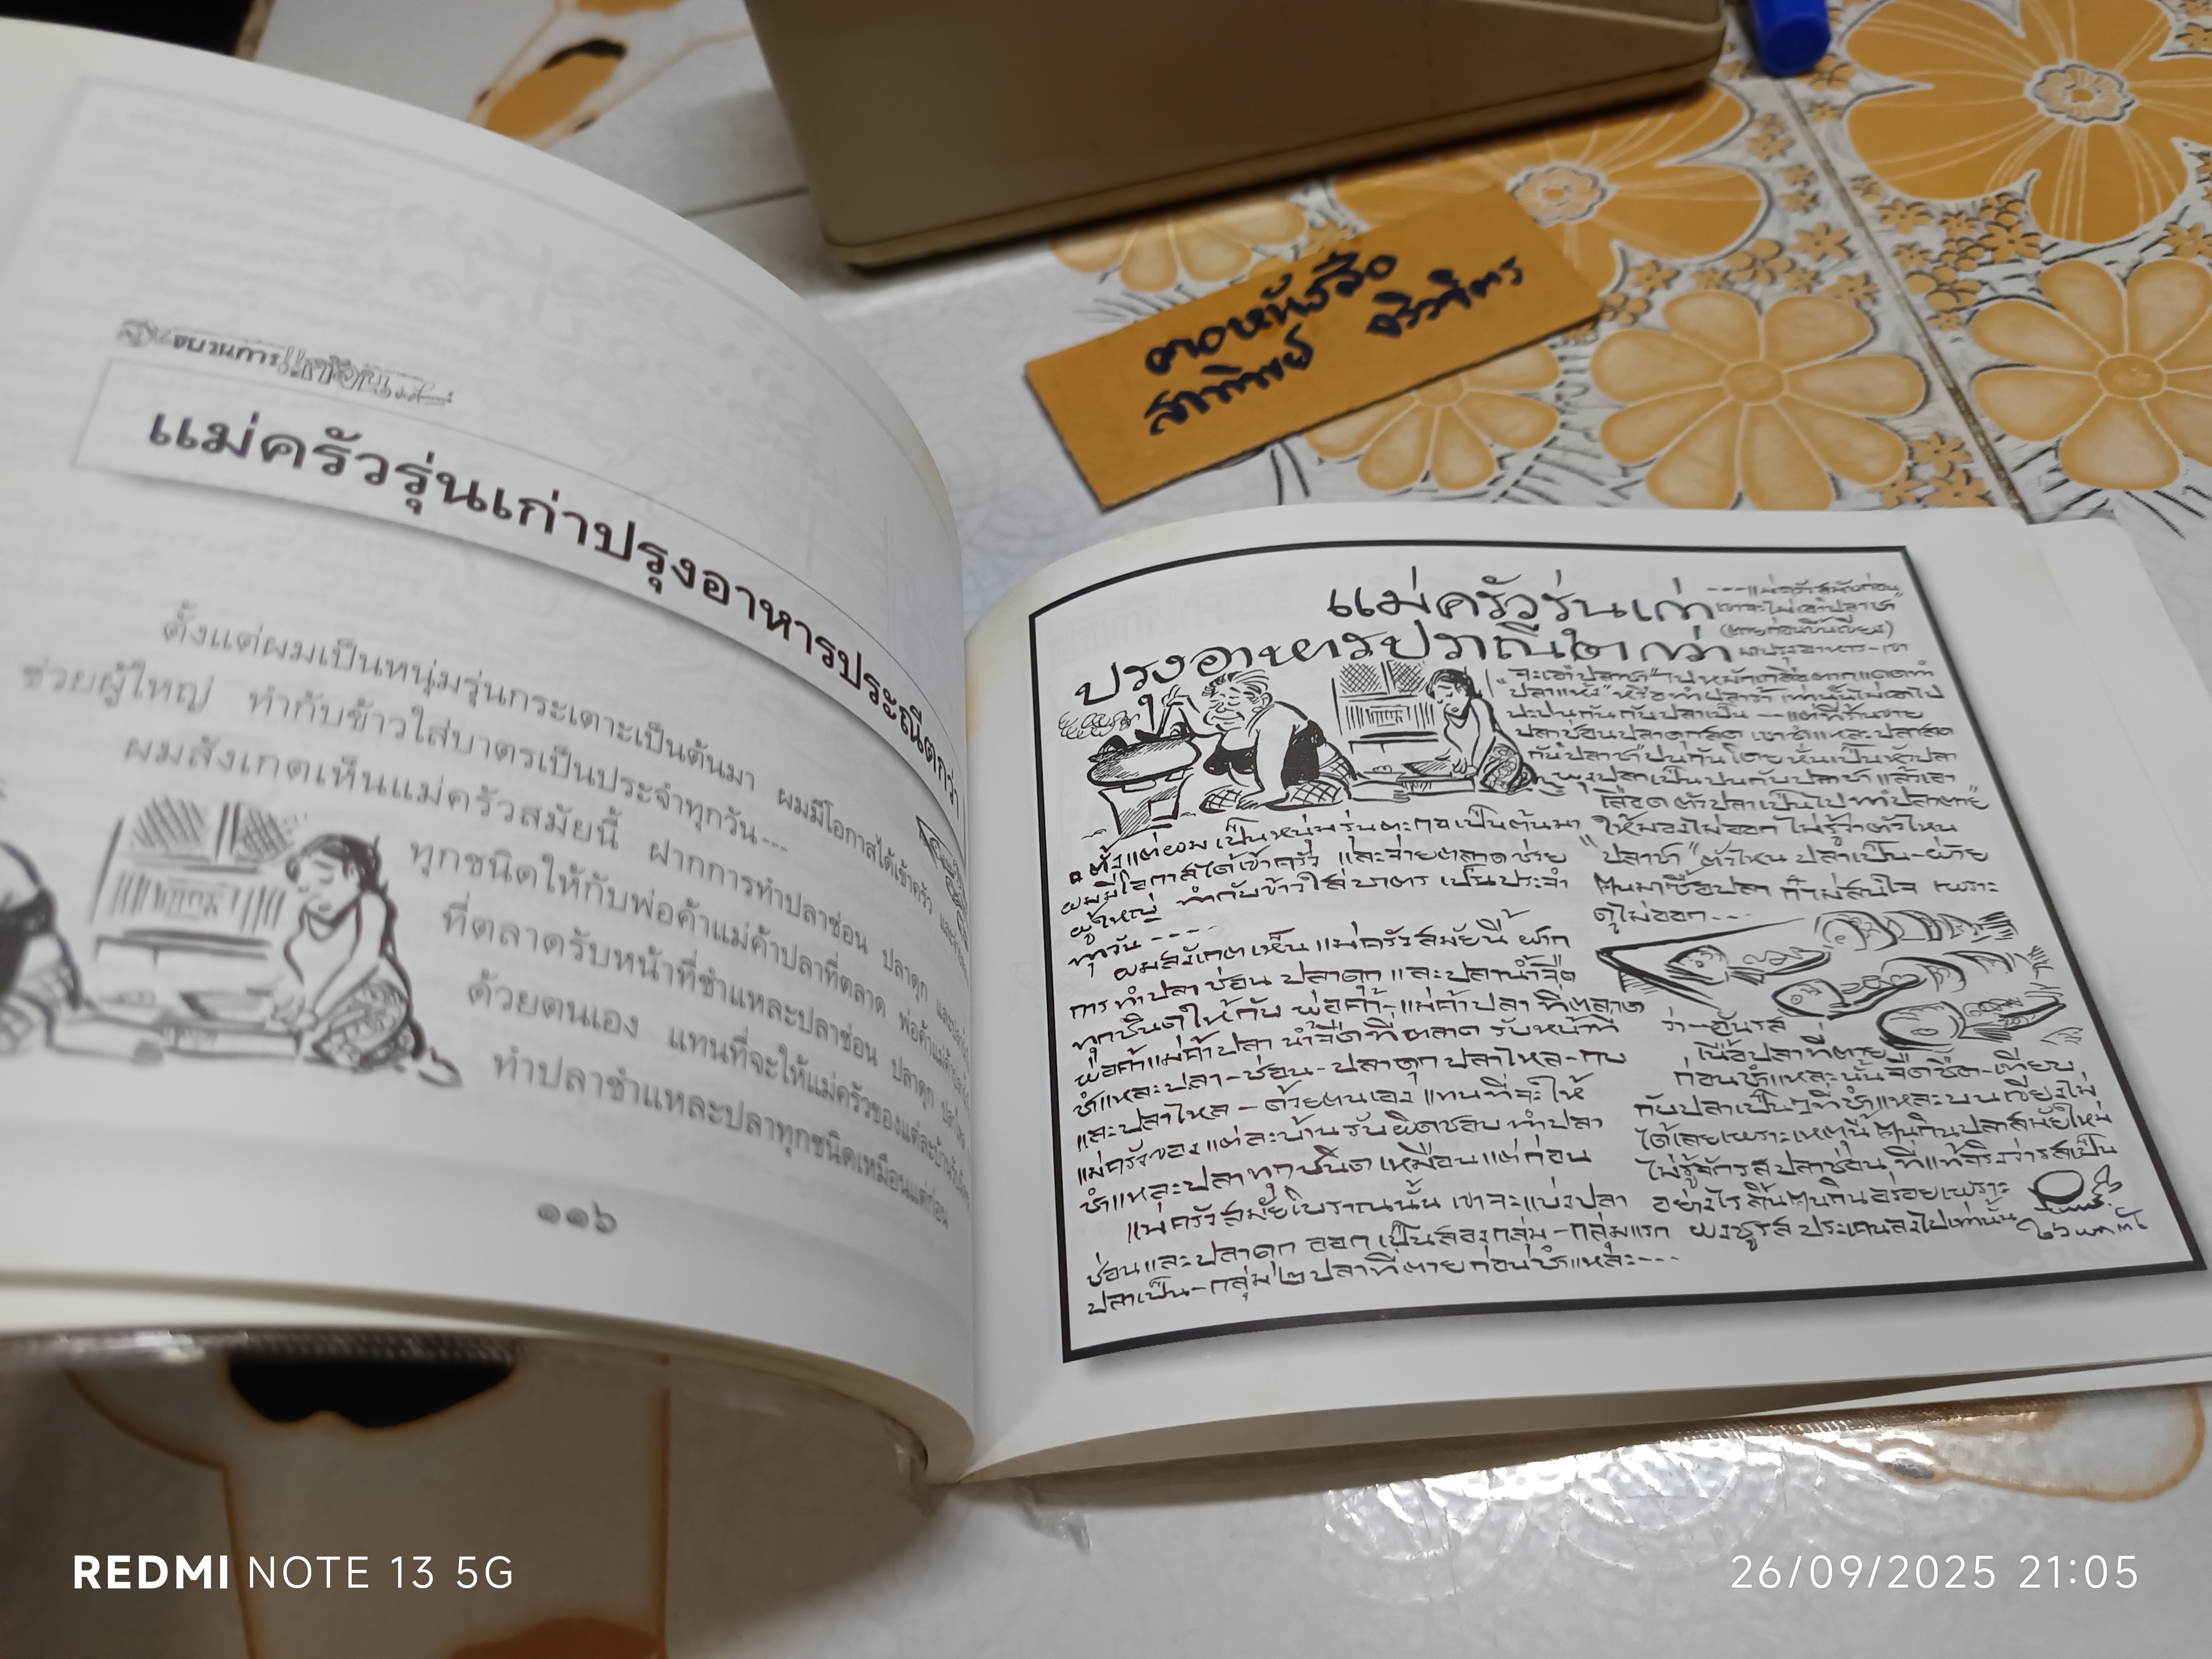 ขบวนการ
แม่ครัวรุ่นเก่าปรุงอาหารประณีตกว่า
ตั้งแต่ผมเป็นหนุ่มรุ่นกระเตาะเป็นต้นมา ผมมีโอกาสได้เข้าครัว
ช่วยผู้ใหญ่ ทำกับข้าวใส่บาตรเป็นประจำทุกวัน---
ผมสังเกตเห็นแม่ครัวสมัยนี้ ฝากการทำปลาช่อน ปลาดุก
ทุกชนิดให้กับพ่อค้าแม่ค้าปลาที่ตลาด พ่อค้าแม่ค้า
ที่ตลาดรับหน้าที่ชำแหละปลาช่อน ปลาดุก
ด้วยตนเอง แทนที่จะให้แม่ครัวของแต่ละบ้าน
ทำปลาชำแหละปลาทุกชนิดเหมือนแต่ก่อน
๑๑๖
ตอหนังสือ
สาทิพย์
แม่ครัวรุ่นเก่า
ปรุงอาหารปราณีตกว่า
ตั้งแต่ผมเป็นหนุ่มรุ่นตะกอเป็นต้นมา
ผมมีโอกาสได้เข้าครัว และจ่ายตลาดช่วย
ผู้ใหญ่ ทำกับข้าวใส่บาตร เป็นประจำ
ทุกวัน----
ผมสังเกตเห็นแม่ครัวสมัยนี้ ฝาก
การทำปลาช่อน ปลาดุก และปลาน้ำจืด
ทุกชนิดให้กับ พ่อค้า-แม่ค้าปลา ที่ตลาด
พ่อค้าแม่ค้าปลา น้ำจืดที่ตลาด รับหน้าที่
ชำแหละปลา-ช่อน-ปลาดุก ปลาไหล-กบ
และปลาไหล-ด้วยตนเอง แทนที่จะให้
แม่ครัวของแต่ละบ้านรับผิดชอบทำปลา
ชำแหละปลาทุกชนิดเหมือนแต่ก่อน
แม่ครัวสมัยโบราณนั้น เขาจะแบ่งปลา
ช่อนและปลาดุก ออกเป็นสองกลุ่ม-กลุ่มแรก
ปลาเป็น-กลุ่ม ๒ ปลาที่ตายก่อนชำแหละ---
---แม่ครัวสมัยก่อน
เขาจะไม่เอาปลาช้ำ
(ตายก่อนขึ้นเขียง)
มาปรุงอาหาร-เขา
จะเอาปลาช้ำไปหมักเกลือตากแดดทำ
ปลาแห้ง หรือทำปลาร้า เท่านั้นไม่เอาไป
ปะปนกันกับปลาเป็น--แต่ที่ร้านขาย
ปลาช่อนปลาดุกสด เขาชำแหละปลาสด
กับปลาช้ำปนกันโดย หั่นเป็นหัวปลา
พุงปลาเป็นปนกับปลาช้ำ แล้วเอา
เลือดตัวปลาเป็นไปทาปลาตาย
ให้มองไม่ออก ไม่รู้ว่าตัวไหน
"ปลาช้ำ" ตัวไหน ปลาเป็น-
คนมาซื้อปลา ก็ไม่สนใจ เพราะ
ดูไม่ออก---
เนื้อปลาที่ตาย
ก่อนชำแหละนั้นจืดชืด-เทียบ
กับปลาเป็นๆที่ชำแหละบนเขียงไม่
ได้เลยเพราะเหตุนี้ คนกินปลาสมัยใหม่
ไม่รู้จักรสปลาช่อน ที่แท้จริงว่ารสเป็น
อย่างไร ลิ้นคนกินอร่อยเพราะ
ผงชูรส ประเคนลงไปเท่านั้น
REDMI NOTE 13 5G
26/09/2025 21:05